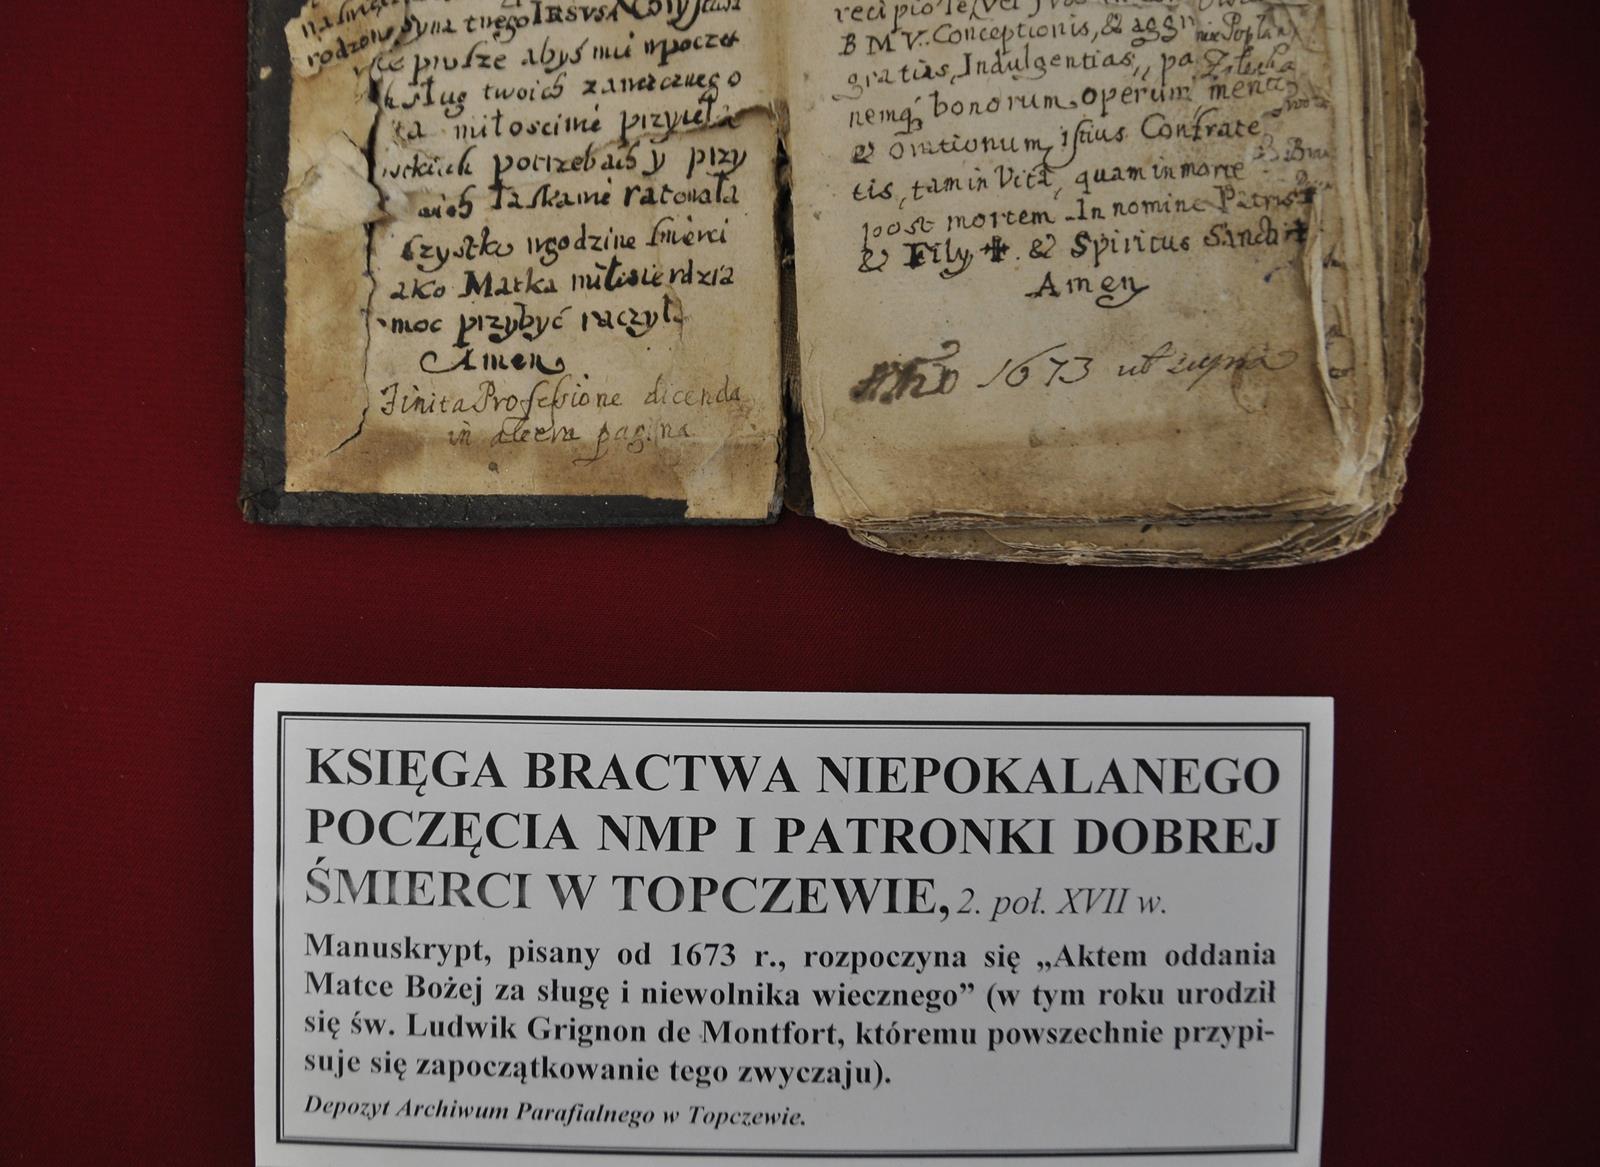 rodzony Syna twego IESVSA
proszę abyś mię w poczet
sług twoich zawecznego
miłosciwie przyięła
potrzebach y przy
łaskami ratowała
wszystko w godzine smierci
ako Matka miłosierdzia
moc przybyć raczyła
Amen
Finita Professione dicenda
in altera pagina
B M V. Conceptionis, &
gratias, Indulgentias,
nemq bonorum operum
& orationum, istius Confrate
tis, tam in Vita, quam in morte
post mortem. In nomine Patris ✝
& Fily ✝. & Spiritus Sancti ✝
Amen
1673
KSIĘGA BRACTWA NIEPOKALANEGO
POCZĘCIA NMP I PATRONKI DOBREJ
ŚMIERCI W TOPCZEWIE, 2. poł. XVII w.
Manuskrypt, pisany od 1673 r., rozpoczyna się „Aktem oddania
Matce Bożej za sługę i niewolnika wiecznego” (w tym roku urodził
się św. Ludwik Grignon de Montfort, któremu powszechnie przypi-
suje się zapoczątkowanie tego zwyczaju).
Depozyt Archiwum Parafialnego w Topczewie.